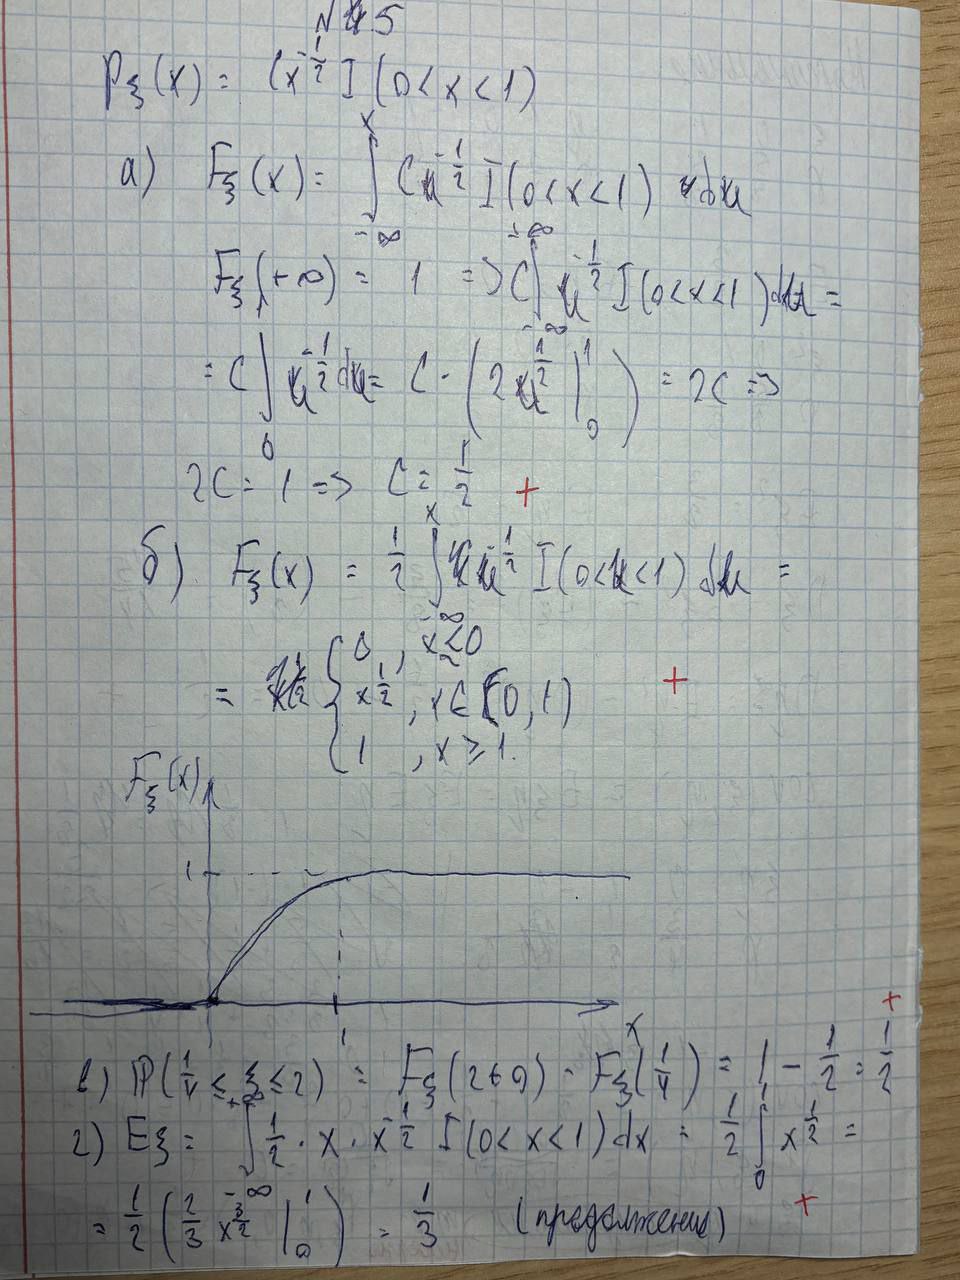 N 5
Pξ(x) = Cx^{-1/2} I(0<x<1)
а) Fξ(x) = ∫_{-∞}^{x} Cu^{-1/2} I(0<x<1) du
Fξ(+∞) = 1 => C∫_{-∞}^{+∞} u^{-1/2} I(0<x<1) du =
= C∫_{0} u^{-1/2} du = C · (2u^{1/2} |_{0}^{1}) = 2C =>
2C = 1 => C = 1/2 +
б) Fξ(x) = 1/2 ∫_{-∞}^{x} u^{-1/2} I(0<u<1) du =
= { 0, x<0
x^{1/2}, x∈[0,1) +
1, x ≥ 1.
Fξ(x)
1
1
x
+
в) P(1/4 ≤ ξ ≤ 2) = Fξ(2+0) - Fξ(1/4) = 1 - 1/2 = 1/2
г) Eξ = ∫_{-∞}^{+∞} 1/2 · x · x^{-1/2} I(0<x<1) dx = 1/2 ∫_{0}^{1} x^{1/2} =
= 1/2 (2/3 x^{3/2} |_{0}^{1}) = 1/3 (продолжение) +